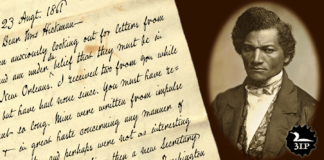 23 Augt. 1861
Dear Mrs Hickman—
am anxiously looking out for letters from
am under belief that they must be in
New Orleans, I received two from you while
but have had none since. You must have re-
but so long. Mine were written from impulse
& in great haste concerning any manner of
and perhaps were not as interesting
then a new Secretary
Washington
31P